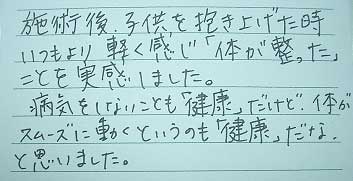 施術後、子供を抱き上げた時
いつもより軽く感じ「体が整った」
ことを実感しました。
病気をしないことも「健康」だけど、体が
スムーズに動くというのも「健康」だな、
と思いました。